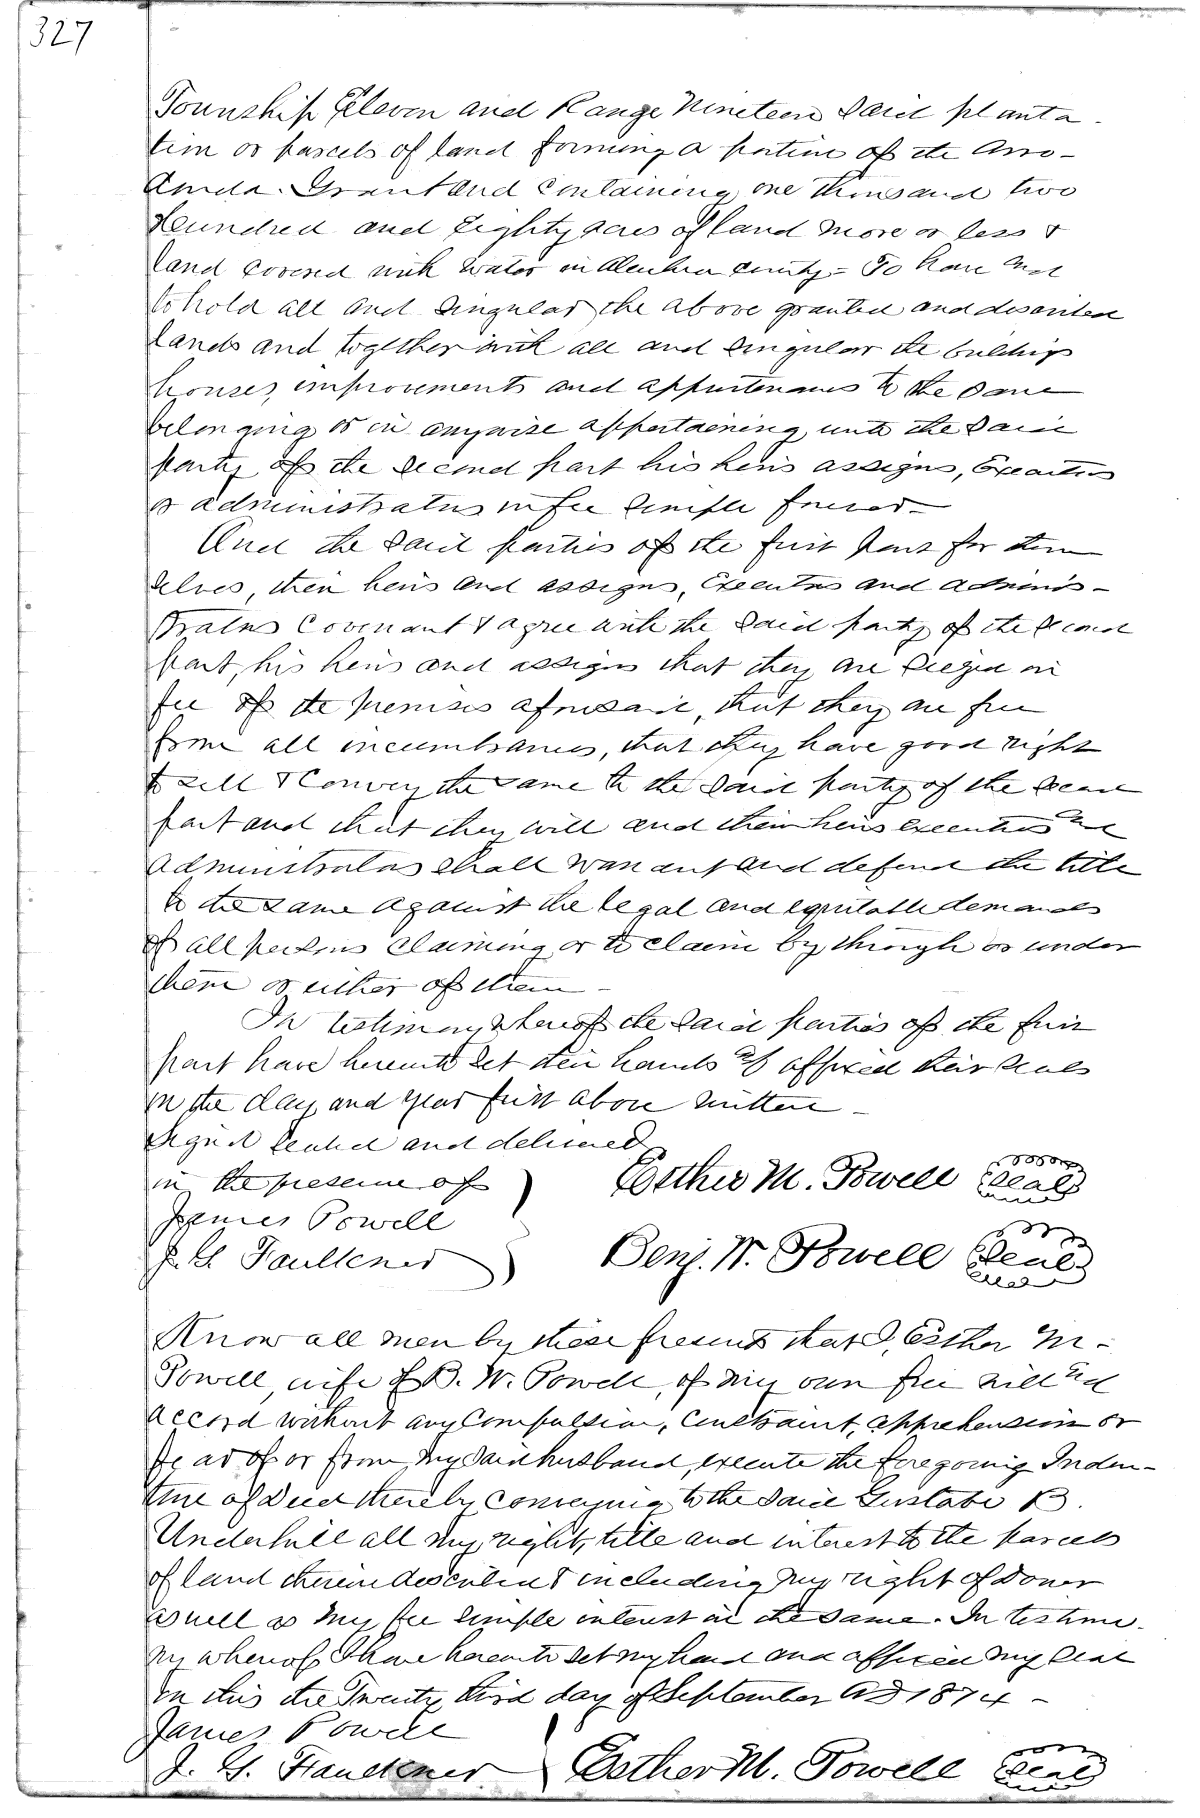 327
Township Eleven and Range Nineteen Said planta-
tion or parcels of land forming a portion of the Arre-
donda Grant and containing one thousand two
Hundred and Eighty acres of land more or less &
land covered with water in Alachua county = To have and
to hold all and singular the above granted and described
lands and together with all and singular the buildings
houses, improvements and appurtenances to the same
belonging or in anywise appertaining unto the said
party of the second part his heirs assigns, Executors
or administrators in fee simple forever -
And the said parties of the first part for them
selves, their heirs and assigns, Executors and adminis-
trators Covenant & agree with the said party of the second
part, his heirs and assigns that they are siezed in
fee of the premises aforesaid, that they are free
from all incumbrances, that they have good right
to sell & Convey the same to the said party of the second
part and that they will and their heirs executors and
administrators shall warrant and defend the title
to the same against the legal and equitable demands
of all persons claiming or to claim by through or under
them or either of them -
In testimony whereof the said parties of the first
part have hereunto set their hands & affixed their seals
on the day and year first above written -
Signed sealed and delivered
in the presence of
James Powell
J. G. Faulkner
Esther M. Powell Seal
Benj. W. Powell Seal
Know all men by these presents that I, Esther M.
Powell, wife of B. W. Powell, of my own free will and
accord without any compulsion, constraint, apprehension or
fear of or from my said husband, execute the foregoing Inden-
ture of Deed thereby conveying to the said Gustave B.
Underhill all my right, title and interest to the parcels
of land therein described & including my right of Dower
as well as my fee simple interest in the same. In testimo-
ny whereof I have hereunto set my hand and affixed my seal
on this the Twenty third day of September AD 1874 -
James Powell
J. G. Faulkner
Esther M. Powell Seal